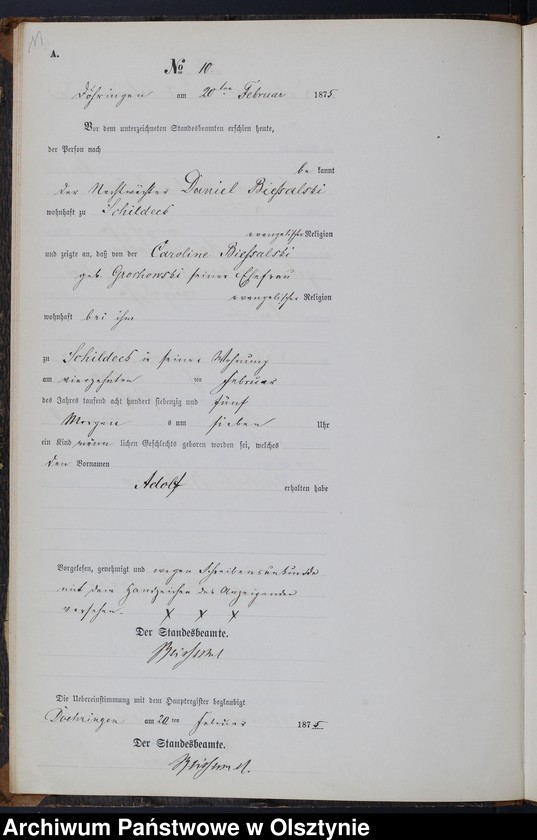 A.
№ 10
Döhringen am 20ten Februar 1875
Vor dem unterzeichneten Standesbeamten erschien heute,
der Person nach
be kannt
der Nachtwächter Daniel Biessalski
wohnhaft zu Schildeck
evangelischer Religion
und zeigte an, daß von der Caroline Biessalski
geb. seiner Ehefrau
evangelischer Religion
wohnhaft bei ihm
zu Schildeck in seiner Wohnung
am vierzehnten ten Februar
des Jahres tausend acht hundert siebenzig und fünf
Morgens um sieben Uhr
ein Kind männ lichen Geschlechts geboren worden sei, welches
den Vornamen
Adolf
erhalten habe
Vorgelesen, genehmigt und wegen Schreibensunkunde
mit dem Handzeichen des Anzeigenden
versehen. X X X
Der Standesbeamte.
Die Uebereinstimmung mit dem Hauptregister beglaubigt
Doehringen am 20 ten Februar 1875
Der Standesbeamte.
Archiwum Państwowe w Olsztynie